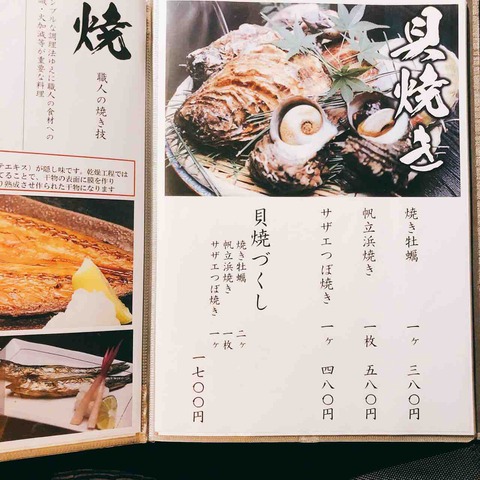 貝焼き
焼き牡蠣 一ヶ 三八〇円
帆立浜焼き 一枚 五八〇円
サザエつぼ焼き 一ヶ 四八〇円
貝焼づくし
焼き牡蠣 二ヶ
帆立浜焼き 一枚
サザエつぼ焼き 一ヶ
一七〇〇円
焼
職人の焼き技
ンプルな調理法ゆえに職人の食材への
減・火加減等が重要な料理
エキス)が隠し味です。乾燥工程では
てることで、干物の表面に膜を作り
り熟成させ作られた干物になります